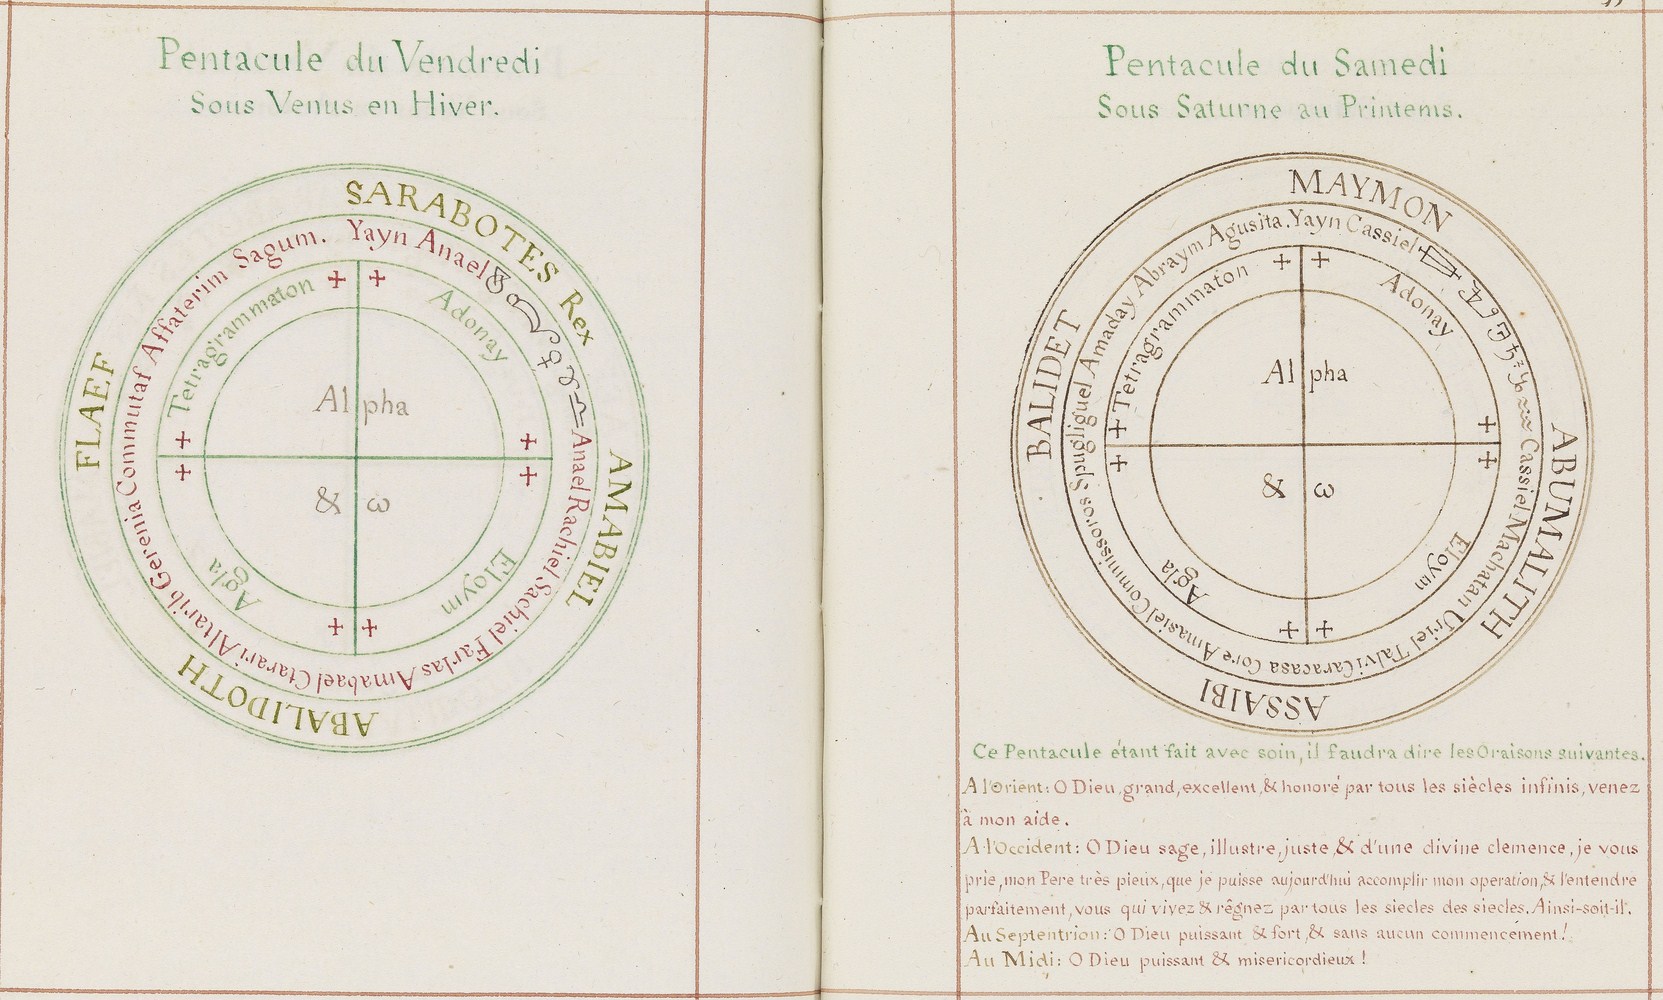 Pentacule du Vendredi
Sous Venus en Hiver.
SARABOTES Rex
AMABIEL
ABALIDOTH
FLAEF
Yayn Anael
Anael Rachiel Sachiel Farlas Amabael Ctarari Altarib Gerenia Commutaf Affaterim Sagum.
Adonay
Eloym
Agla
Tetragrammaton
Al pha
& ω
Pentacule du Samedi
Sous Saturne au Printems.
MAYMON
ABUMALITH
ASSAIBI
BALIDET
Yayn Cassiel
Cassiel Machatan Uriel Talvi Caracasa Core Amasiel Commissoros Spugliguel Amaday Abraym Agusita.
Adonay
Eloym
Agla
Tetragrammaton
Al pha
& ω
Ce Pentacule étant fait avec soin, il faudra dire les Oraisons suivantes.
A l'Orient: O Dieu, grand, excellent, & honoré par tous les siècles infinis, venez
à mon aide.
A l'Occident: O Dieu sage, illustre, juste, & d'une divine clemence, je vous
prie, mon Pere très pieux, que je puisse aujourd'hui accomplir mon operation, & l'entendre
parfaitement, vous qui vivez & rêgnez par tous les siecles des siecles. Ainsi-soit-il.
Au Septentrion: O Dieu puissant & fort, & sans aucun commencement!
Au Midi: O Dieu puissant & misericordieux!